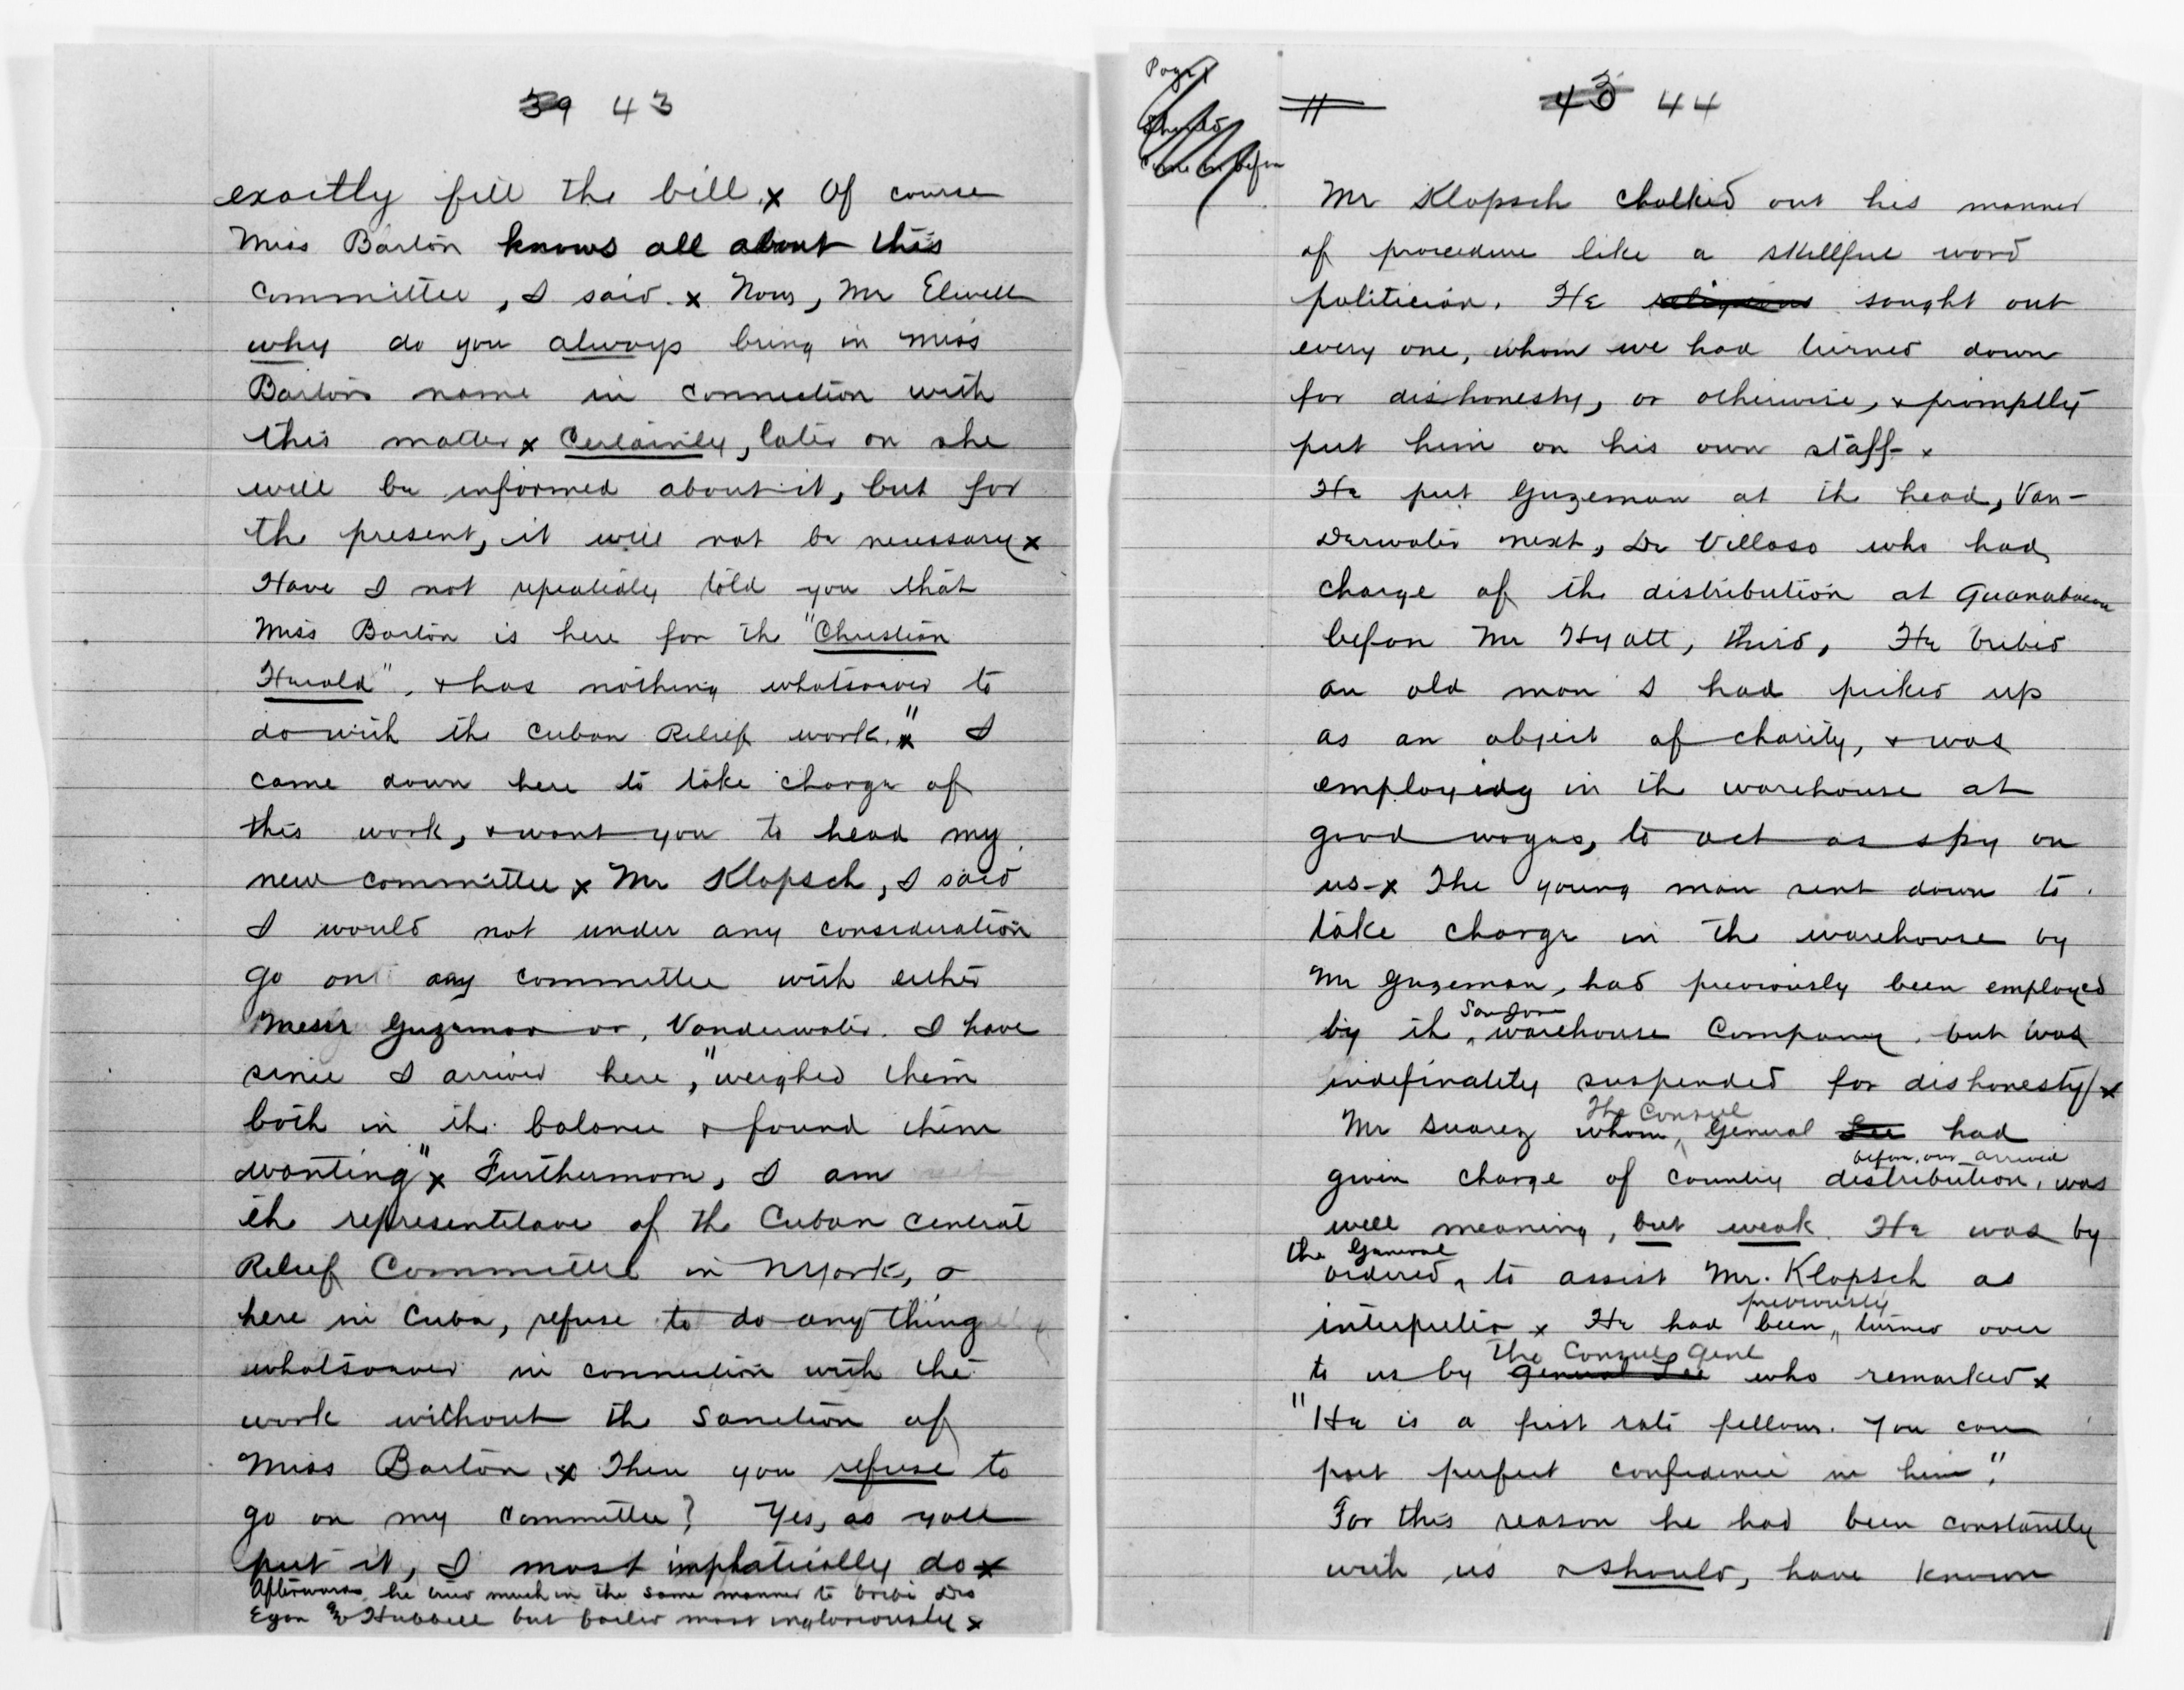 39 43
exactly fill the bill. x Of course
Miss Barton knows all about this
committee, I said. x Now, Mr Elwell
why do you always bring in Miss
Bartons name in connection with
this matter x Certainly, later on she
will be informed about it, but for
the present, it will not be necessary x
Have I not repeatedly told you that
Miss Barton is here for the "Christian
Herald", & has nothing whatsoever to
do with the Cuban Relief work. x" I
came down here to take charge of
this work, & want you to head my
new committee x Mr Klopsch, I said
I would not under any consideration
go on any committee with either
Messrs Guzeman or, Vanderwater. I have
since I arrived here, "weighed them
both in the balance & found them
wanting" x Furthermore, I am
the representitave of the Cuban Central
Relief Committee in NYork, &
here in Cuba, refuse to do any thing
whatsoever in connection with the
work without the sanction of
Miss Barton. x Then you refuse to
go on my committee? Yes, as you
put it, I most imphatically do x
Afterwards he tried much in the same manner to bribe Drs
Egan & Hubbell but failed most ingloriously x
Page
Should
Come in before
43 44
Mr Klopsch chalked out his manner
of procedure like a skillful word
politician. He religious sought out
every one, whom we had turned down
for dishonesty, or otherwise, & promptly
put him on his own staff x
He put Guzeman at the head, Van-
Derwater next, Dr Villoso who had
charge of the distribution at Guanabacoa
before Mr Hyatt, third, He bribed
an old man I had picked up
as an object of charity, & was
employidg in the warehouse at
good wages, to act as spy on
us- x The young man sent down to
take charge in the warehouse by
Mr Guzeman, had previously been employed
San Jose
by the warehouse Company, but was
indefinately suspended for dishonesty x
The Consul
Mr Suarez whom, General Lee had
before our arrival
given charge of country distribution, was
well meaning, but weak. He was by
the General
ordered, to assist Mr. Klopsch as
previously
interpreter x He had been, turned over
The Consul Genl
to us by General Lee who remarked x
"He is a first rate fellow. You can
put perfect confidence in him".
For this reason he had been constantly
with us & should, have known